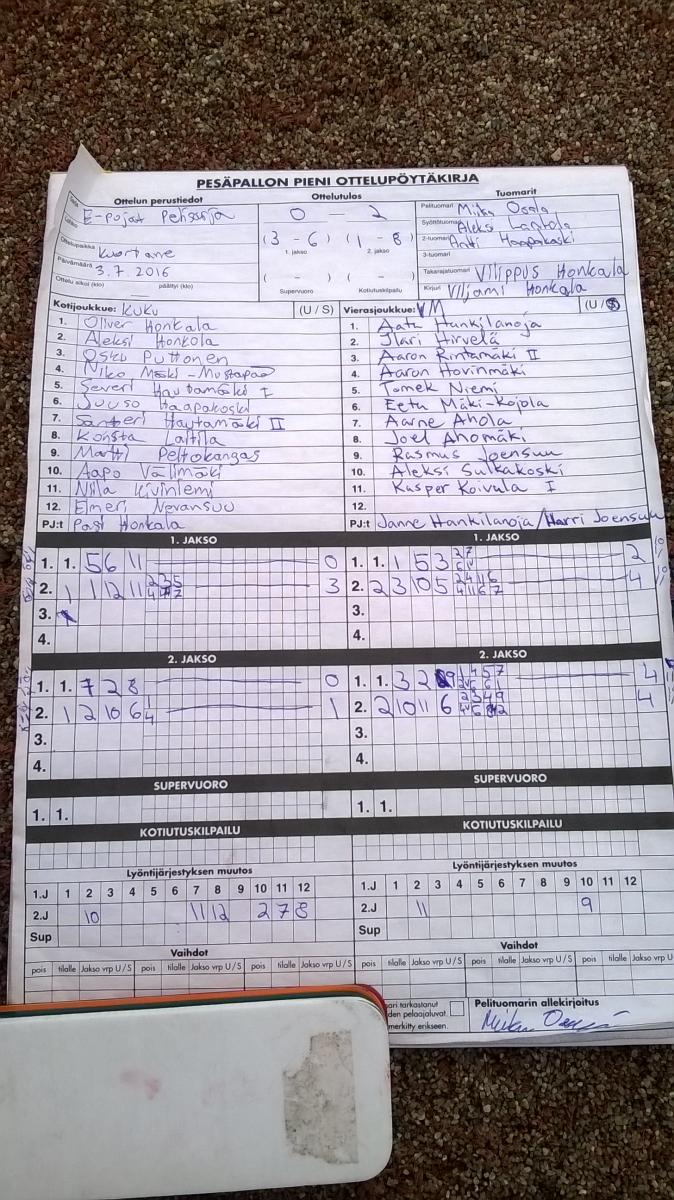 PESÄPALLON PIENI OTTELUPÖYTÄKIRJA
Ottelun perustiedot
E-pojat
Ottelupaikka Kuortane
Päivämäärä 3.7.2016
Ottelu alkoi (klo) päättyi (klo)
Ottelutulos
0 — 2
(3 - 6) (1 - 8)
1. jakso 2. jakso
( - ) ( - )
Supervuoro Kotiutuskilpailu
Tuomarit
Pelituomari Miika Osala
Syöttötuomari Aleksi
2-tuomari Antti Haapakoski
3-tuomari
Takarajatuomari Vilippus Honkala
Kirjuri Viljami Honkala
Kotijoukkue: KuKu (U / S)
1. Oliver Honkala
2. Aleksi Honkola
3. Osku Puttonen
4. Niko Mäki-Mustapää
5. Severi Hautamäki I
6. Juuso Haapakoski
7. Santeri Hautamäki II
8. Konsta Laitila
9. Martti Peltokangas
10. Aapo Välimäki
11. Niila Kiviniemi
12. Elmeri Nevansuu
PJ:t Pasi Honkala
Vierasjoukkue: VM (U / S)
1. Aatu Hankilanoja
2. Ilari Hirvelä
3. Aaron Rintamäki II
4. Aaron Hovinmäki
5. Tomek Niemi
6. Eetu Mäki-Kojola
7. Aarne Ahola
8. Joel Ahomäki
9. Rasmus Joensuu
10. Aleksi Sulkakoski
11. Kasper Koivula I
12.
PJ:t Janne Hankilanoja/Harri Joensuu
1. JAKSO
1. 1. 5 6 11 0
2. 1 1 12 11 3
3.
4.
1. JAKSO
1. 1. 1 5 3 2
2. 2 3 10 5 4
3.
4.
2. JAKSO
1. 1. 7 2 8 0
2. 1 2 10 6 1
3.
4.
2. JAKSO
1. 1. 3 2 4
2. 2 10 11 6 4
3.
4.
SUPERVUORO
1. 1.
SUPERVUORO
1. 1.
KOTIUTUSKILPAILU
KOTIUTUSKILPAILU
Lyöntijärjestyksen muutos
1.J 1 2 3 4 5 6 7 8 9 10 11 12
2.J 10 11 12 2 7 8
Sup
Lyöntijärjestyksen muutos
1.J 1 2 3 4 5 6 7 8 9 10 11 12
2.J 11 9
Sup
Vaihdot
pois tilalle Jakso vrp U / S pois tilalle Jakso vrp U / S pois tilalle Jakso vrp U / S
Vaihdot
pois tilalle Jakso vrp U / S pois tilalle Jakso vrp U / S pois tilalle Jakso vrp U
ari tarkastanut
den pelaajaluvat.
merkitty erikseen.
Pelituomarin allekirjoitus